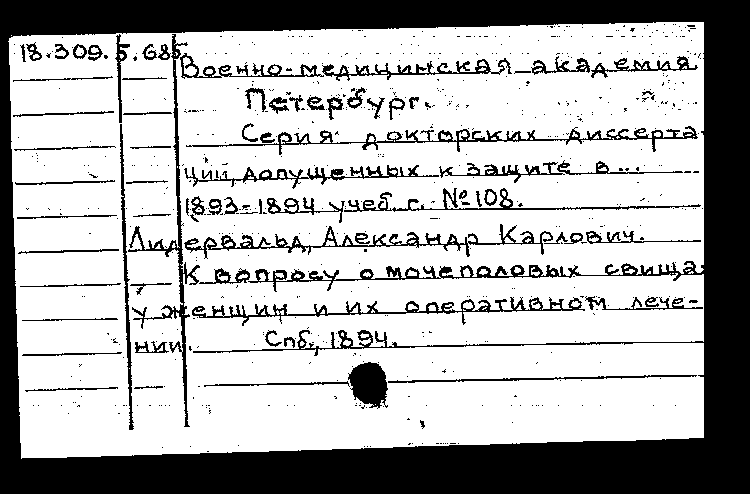 18.309.5.685.
Военно-медицинская академия
Петербург.
Серия докторских диссерта-
ций, допущенных к защите в...
1893-1894 учеб. г. № 108.
Лидервальд, Александр Карлович.
К вопросу о мочеполовых свища
у женщин и их оперативном лече-
нии. Спб., 1894.